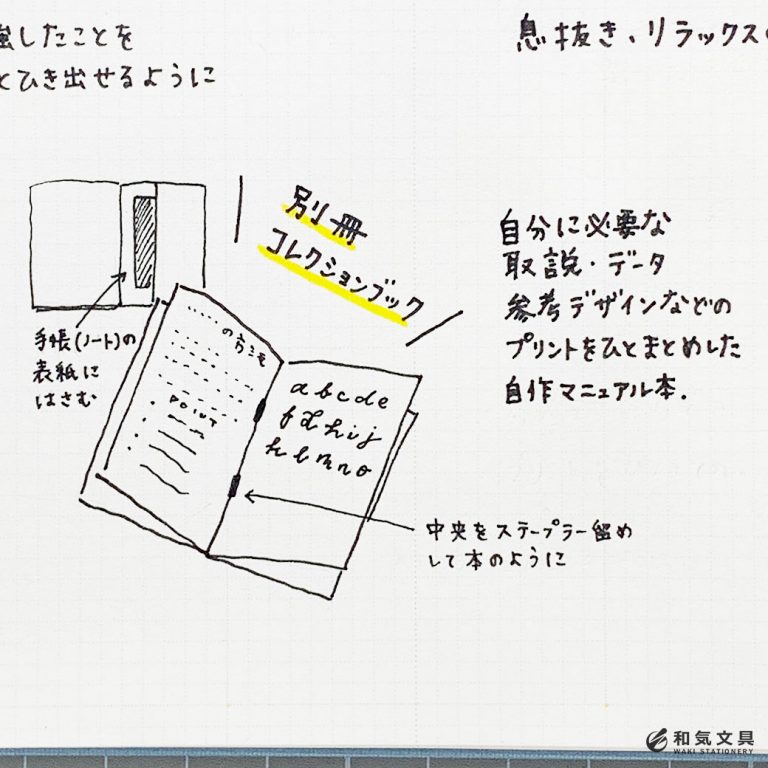 強したことを
とひき出せるように
息抜き、リラックスの
別冊
コレクションブック
自分に必要な
取説・データ
参考デザインなどの
プリントをひとまとめした
自作マニュアル本.
手帳(ノート)の
表紙に
はさむ
の方法
POINT
abcde
fghij
klmno
中央をステープラー留め
して本のように
和気文具
WAKI STATIONERY